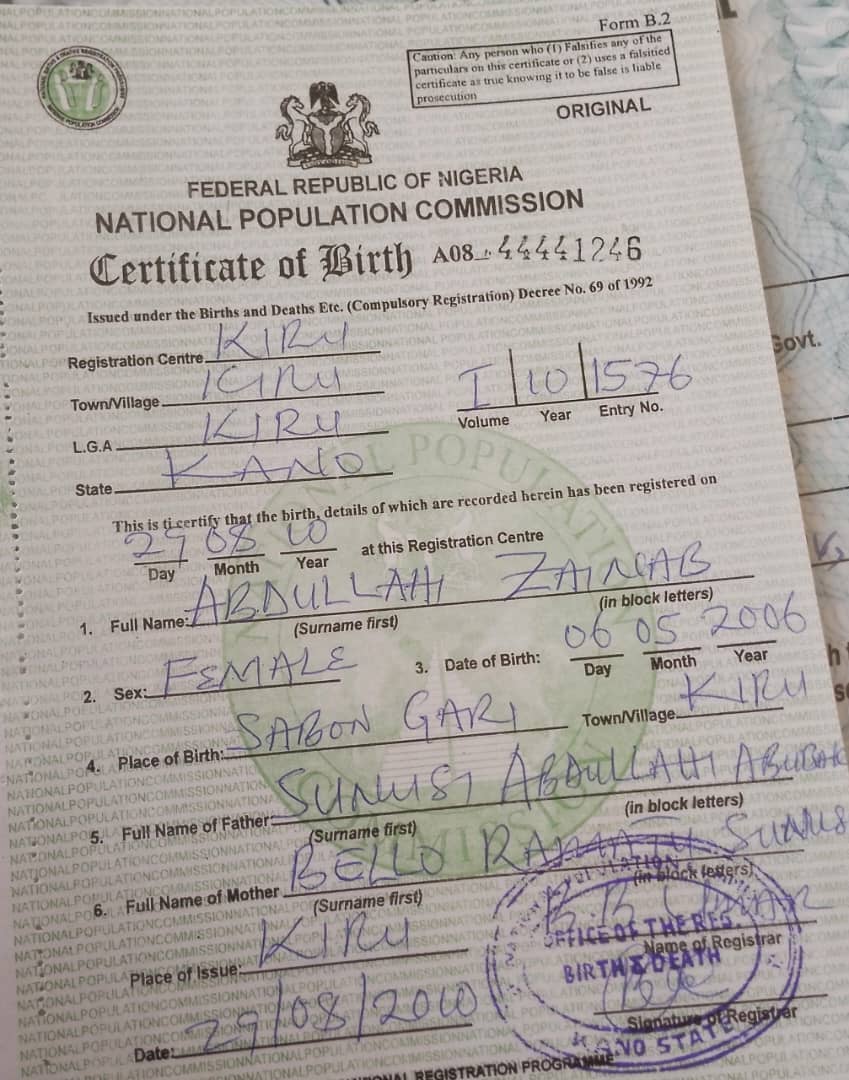 Form B.2
Caution: Any person who (1) Falsifies any of the
particulars on this certificate or (2) uses a falsified
certificate as true knowing it to be false is liable
prosecution
ORIGINAL
FEDERAL REPUBLIC OF NIGERIA
NATIONAL POPULATION COMMISSION
Certificate of Birth A08 44441246
Issued under the Births and Deaths Etc. (Compulsory Registration) Decree No. 69 of 1992
Registration Centre KIRU
Town/Village KIRU
I 10 1576
Volume Year Entry No.
L.G.A KIRU
State KANO
This is ti certify that the birth, details of which are recorded herein has been registered on
29 08 10 at this Registration Centre
Day Month Year
1. Full Name: ABDULLAHI ZAINAB
(Surname first) (in block letters)
2. Sex: FEMALE 3. Date of Birth: 06 05 2006
Day Month Year
4. Place of Birth: SABON GARI Town/Village KIRU
5. Full Name of Father: SUNUSI ABDULLAHI ABUBAK
(Surname first) (in block letters)
6. Full Name of Mother BELLO RAMATU SUNUS
(Surname first) (in block letters)
Place of Issue: KIRU
Name of Registrar
OFFICE OF THE REG.
BIRTH & DEATH
KANO STATE
Date: 29/08/2010
Signature of Registrar
REGISTRATION PROGRAMME
Govt.